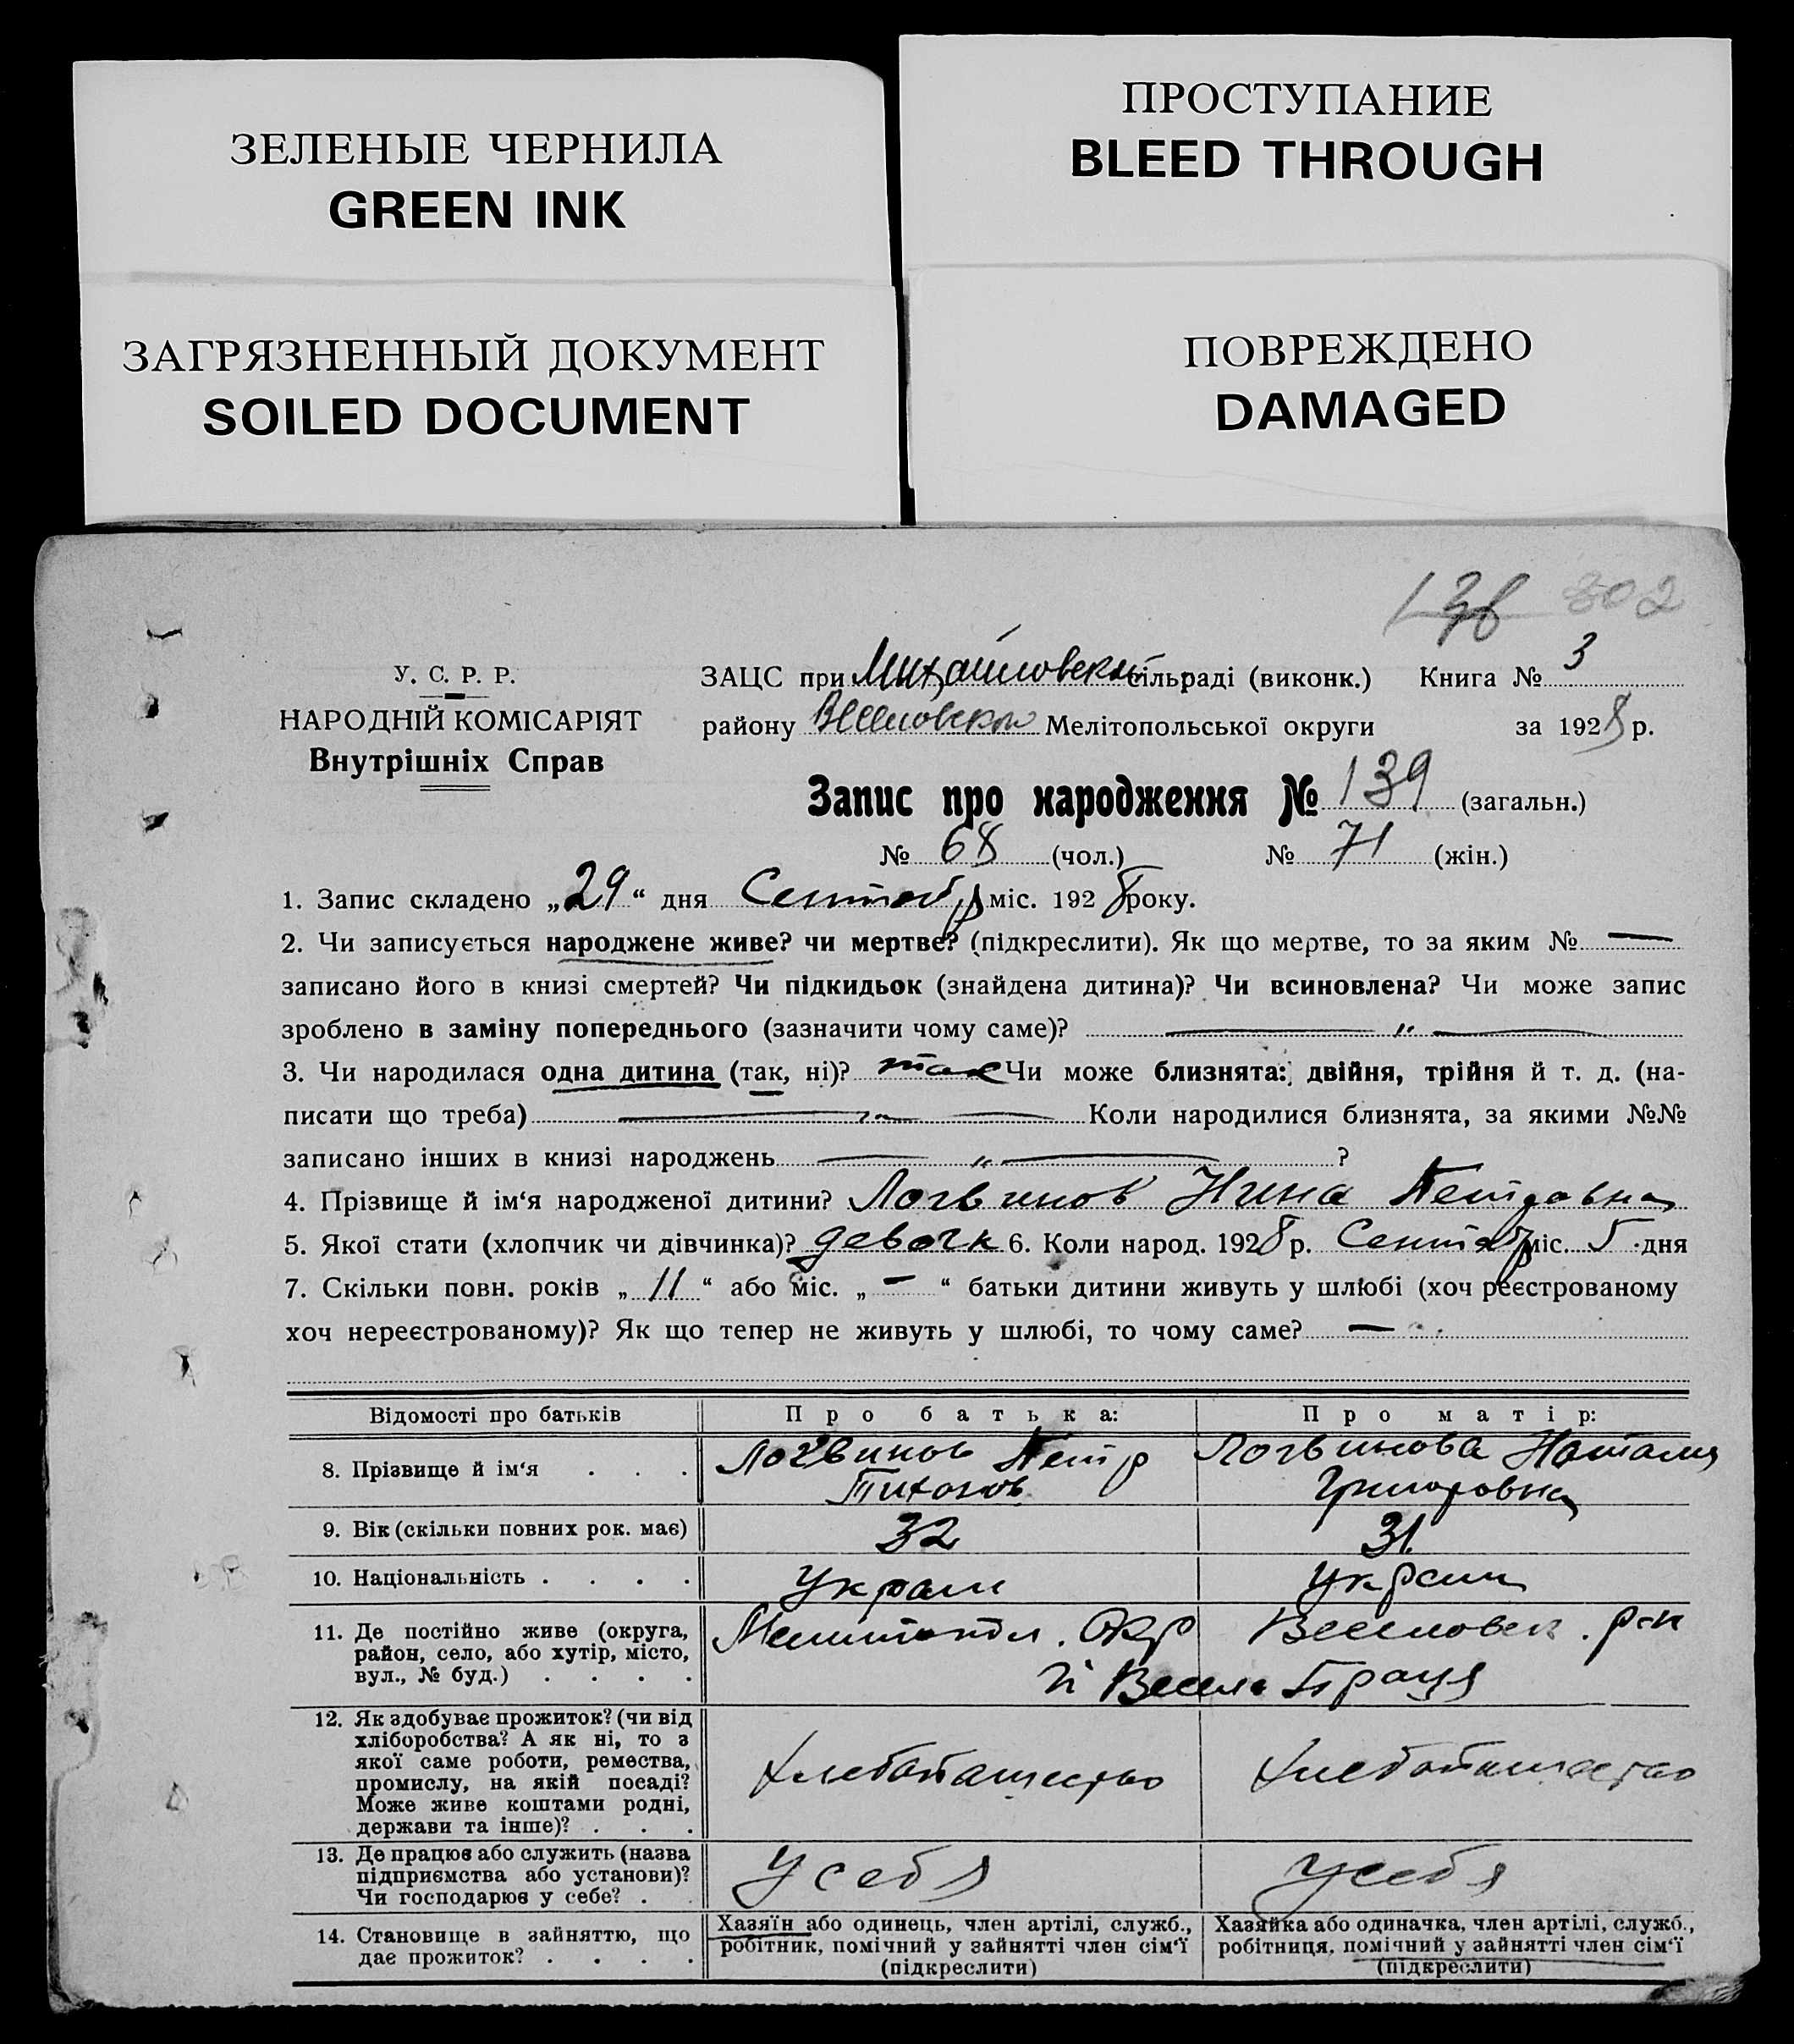 ЗЕЛЕНЫЕ ЧЕРНИЛА
GREEN INK
ЗАГРЯЗНЕННЫЙ ДОКУМЕНТ
SOILED DOCUMENT
ПРОСТУПАНИЕ
BLEED THROUGH
ПОВРЕЖДЕНО
DAMAGED
302
У. С. Р. Р.
НАРОДНІЙ КОМІСАРІЯТ
Внутрішніх Справ
ЗАЦС при Михайловском сільраді (виконк.) Книга № 3
району Веселовском Мелітопольської округи за 1928 р.
Запис про народження № 139 (загальн.)
№ 68 (чол.) № 71 (жін.)
1. Запис складено „29“ дня Сентября міс. 1928 року.
2. Чи записується народжене живе? чи мертве? (підкреслити). Як що мертве, то за яким № —
записано його в книзі смертей? Чи підкидьок (знайдена дитина)? Чи всиновлена? Чи може запис
зроблено в заміну попереднього (зазначити чому саме)? — „ —
3. Чи народилася одна дитина (так, ні)? так Чи може близнята: двійня, трійня й т. д. (на-
писати що треба) — „ — Коли народилися близнята, за якими №№
записано інших в книзі народжень — „ — ?
4. Прізвище й ім‘я народженої дитини? Логвинов Нина Петровна
5. Якої стати (хлопчик чи дівчинка)? девочк 6. Коли народ. 1928 р. Сентяб міс. 5 дня
7. Скільки повн. років „11“ або міс. „—“ батьки дитини живуть у шлюбі (хоч реєстрованому
хоч нереєстрованому)? Як що тепер не живуть у шлюбі, то чому саме? —
Відомості про батьків Про батька: Про матір:
8. Прізвище й ім‘я . . . Логвинов Петр Логвинова Наталия
Тихонов Григоровна
9. Вік (скільки повних рок. має) 32 31.
10. Національність . . . . Украин Украин
11. Де постійно живе (округа,
район, село, або хутір, місто,
вул., № буд.) . . . .
Мелитопол. Окр Веселовск. р-н
Весела Праця
12. Як здобуває прожиток? (чи від
хліборобства? А як ні, то з
якої саме роботи, ремества,
промислу, на якій посаді?
Може живе коштами родні,
держави та інше)? . . .
Хлебопашество Хлебопашество
13. Де працює або служить (назва
підприємства або установи)?
Чи господарює у себе? .
У себя У себя
14. Становище в зайняттю, що
дає прожиток? . . . .
Хазяїн або одинець, член артілі, служб.,
робітник, помічний у зайнятті член сім‘ї
(підкреслити)
Хазяйка або одиначка, член артілі, служб.,
робітниця, помічний у зайнятті член сім‘ї
(підкреслити)